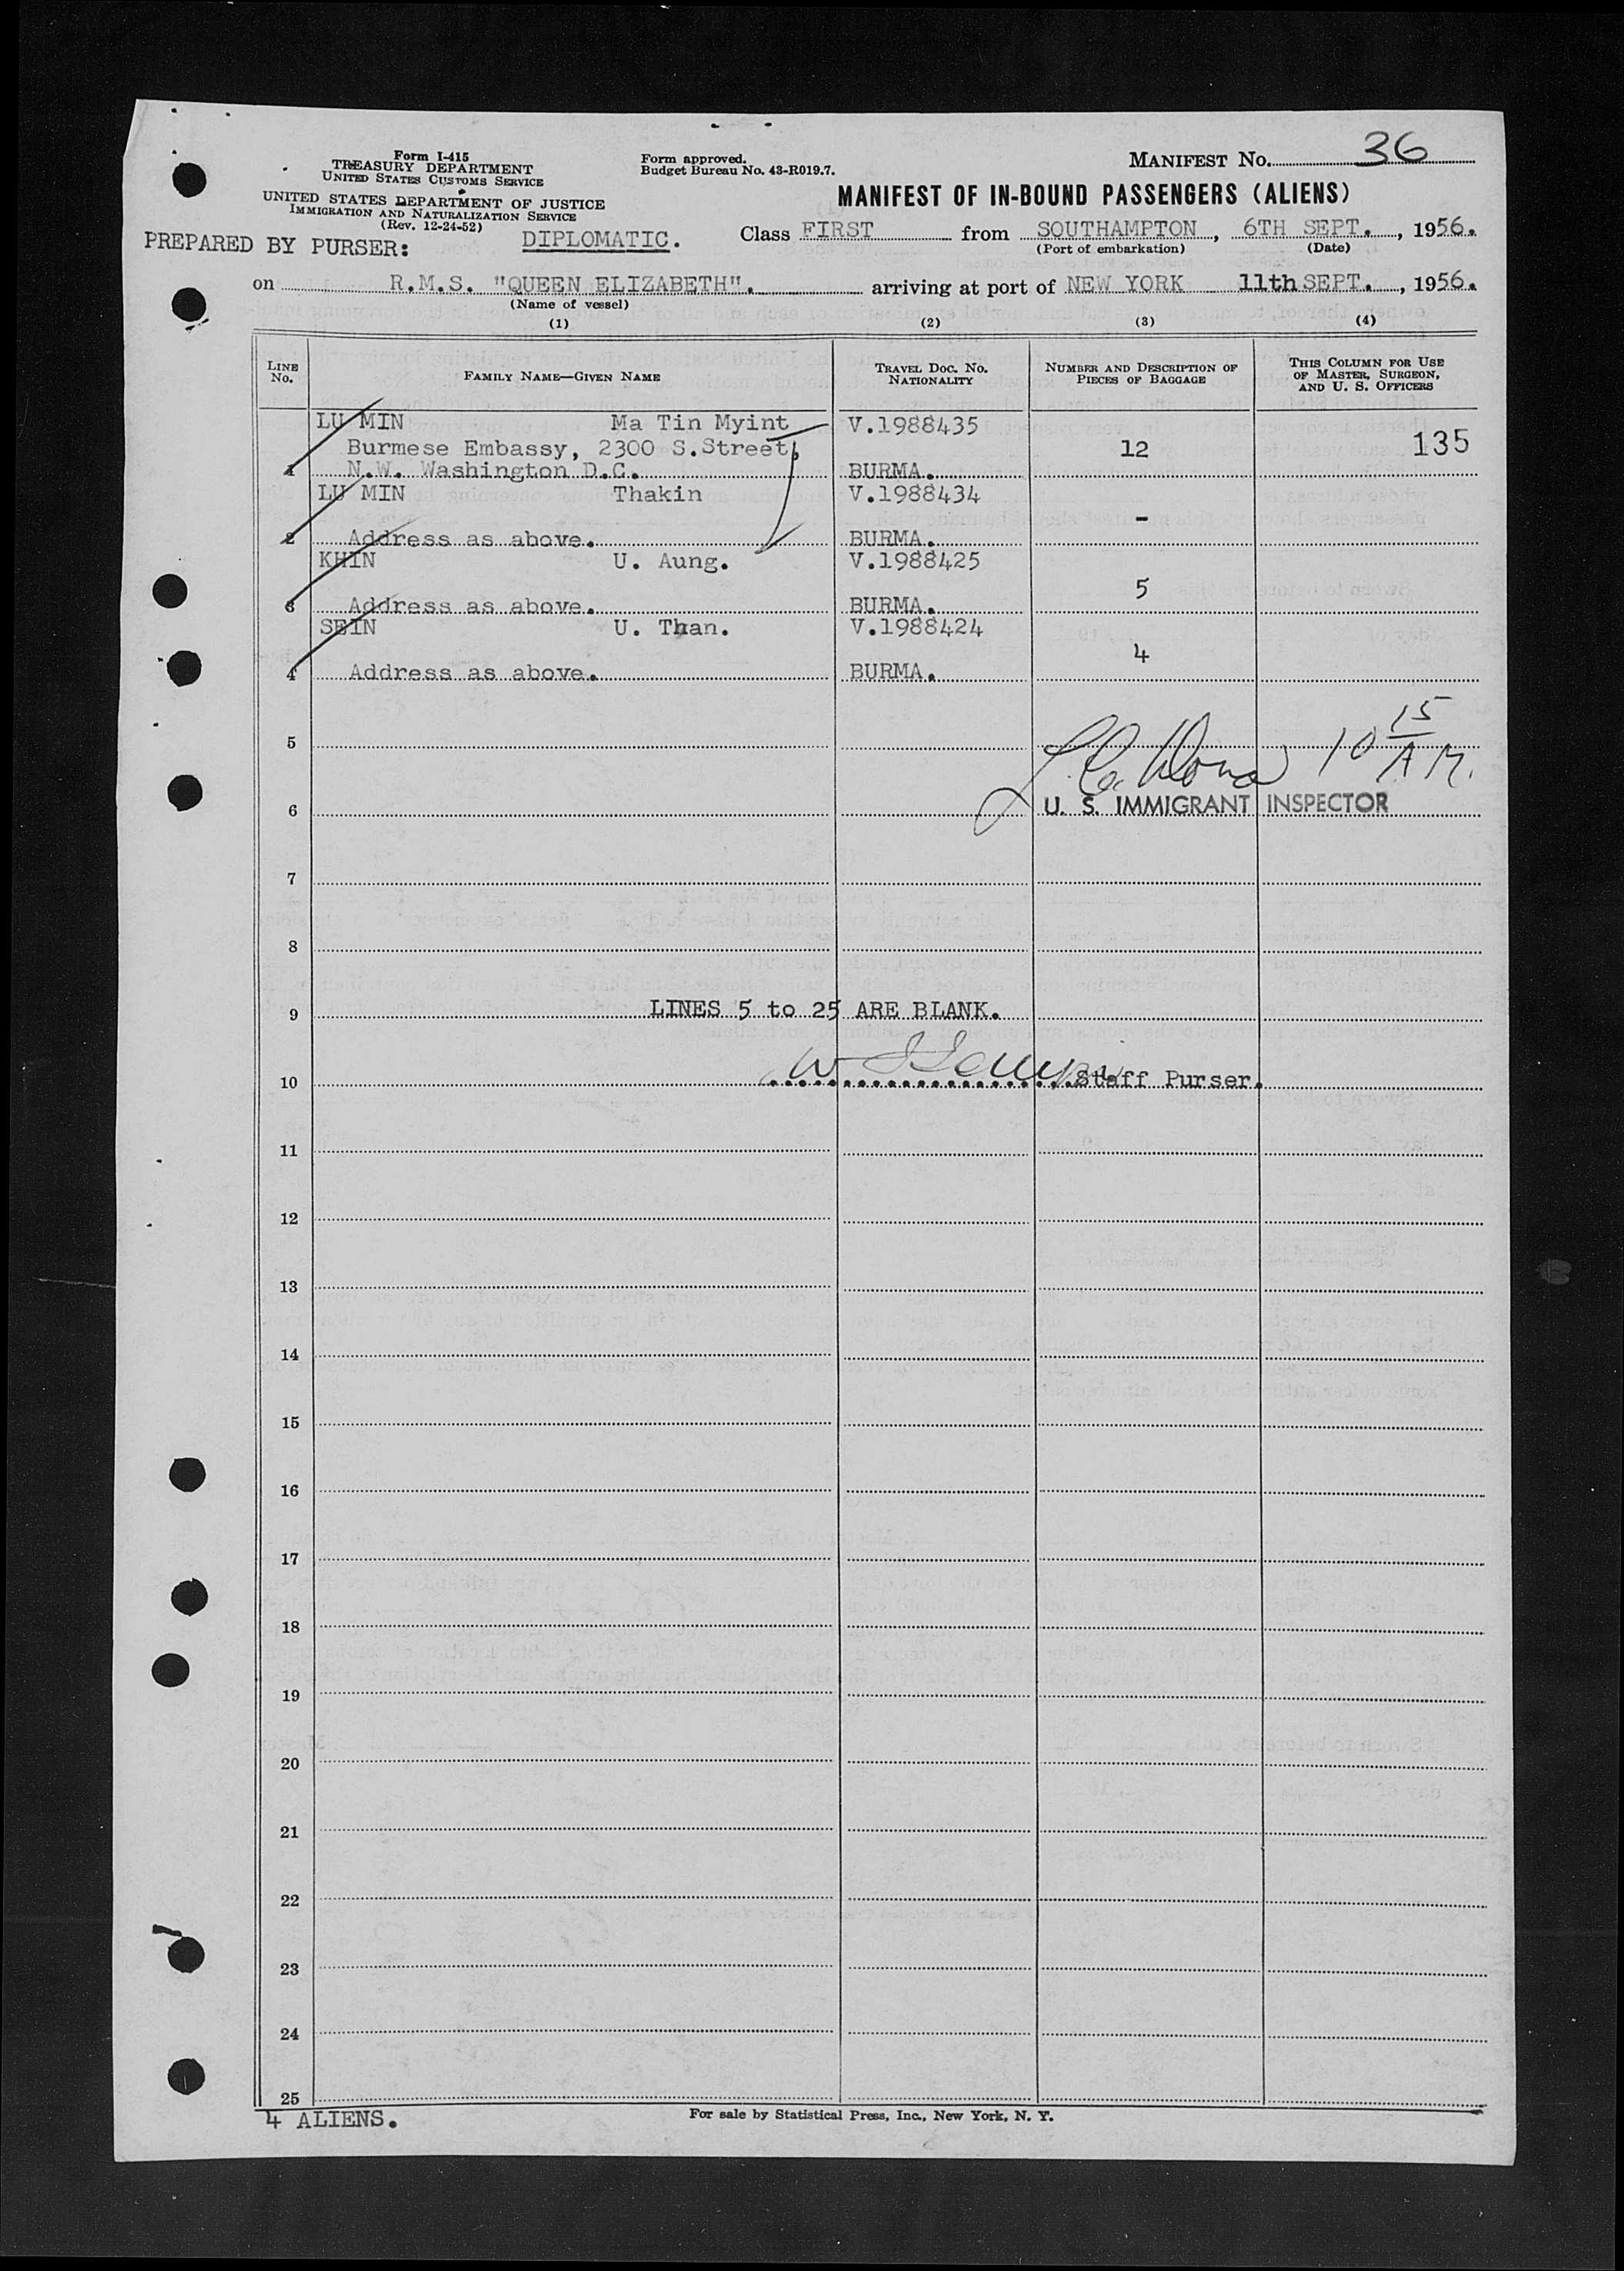 Form I-415
TREASURY DEPARTMENT
UNITED STATES CUSTOMS SERVICE
UNITED STATES DEPARTMENT OF JUSTICE
IMMIGRATION AND NATURALIZATION SERVICE
(Rev. 12-24-52)
Form approved.
Budget Bureau No. 43-R019.7.
MANIFEST NO. 36
MANIFEST OF IN-BOUND PASSENGERS (ALIENS)
PREPARED BY PURSER: DIPLOMATIC. Class FIRST from SOUTHAMPTON, 6TH SEPT., 1956.
(Port of embarkation) (Date)
on R.M.S. "QUEEN ELIZABETH". arriving at port of NEW YORK 11th SEPT., 1956.
(Name of vessel)
(1) (2) (3) (4)
LINE NO. FAMILY NAME—GIVEN NAME TRAVEL DOC. NO. NATIONALITY NUMBER AND DESCRIPTION OF PIECES OF BAGGAGE THIS COLUMN FOR USE OF MASTER, SURGEON, AND U. S. OFFICERS
LU MIN Ma Tin Myint V.1988435
Burmese Embassy, 2300 S.Street, 12 135
1 N.W. Washington D.C. BURMA.
LU MIN Thakin V.1988434
-
2 Address as above. BURMA.
KHIN U. Aung. V.1988425
5
3 Address as above. BURMA.
SEIN U. Than. V.1988424
4
4 Address as above. BURMA.
10 15 A M.
5
U. S. IMMIGRANT INSPECTOR
6
7
8
9 LINES 5 to 25 ARE BLANK.
10 Staff Purser.
11
12
13
14
15
16
17
18
19
20
21
22
23
24
25
4 ALIENS.
For sale by Statistical Press, Inc., New York, N. Y.